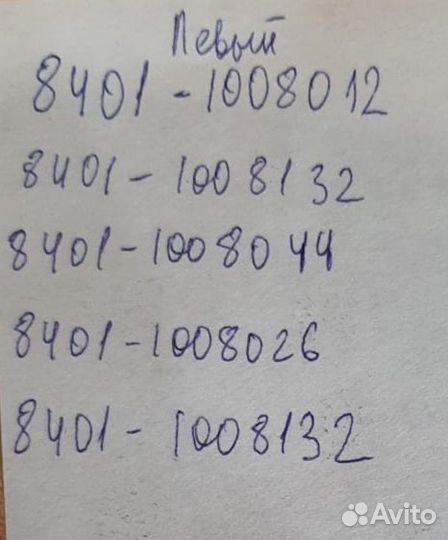 Левый
8401-1008012
8401-1008132
8401-1008044
8401-1008026
8401-1008132
Avito